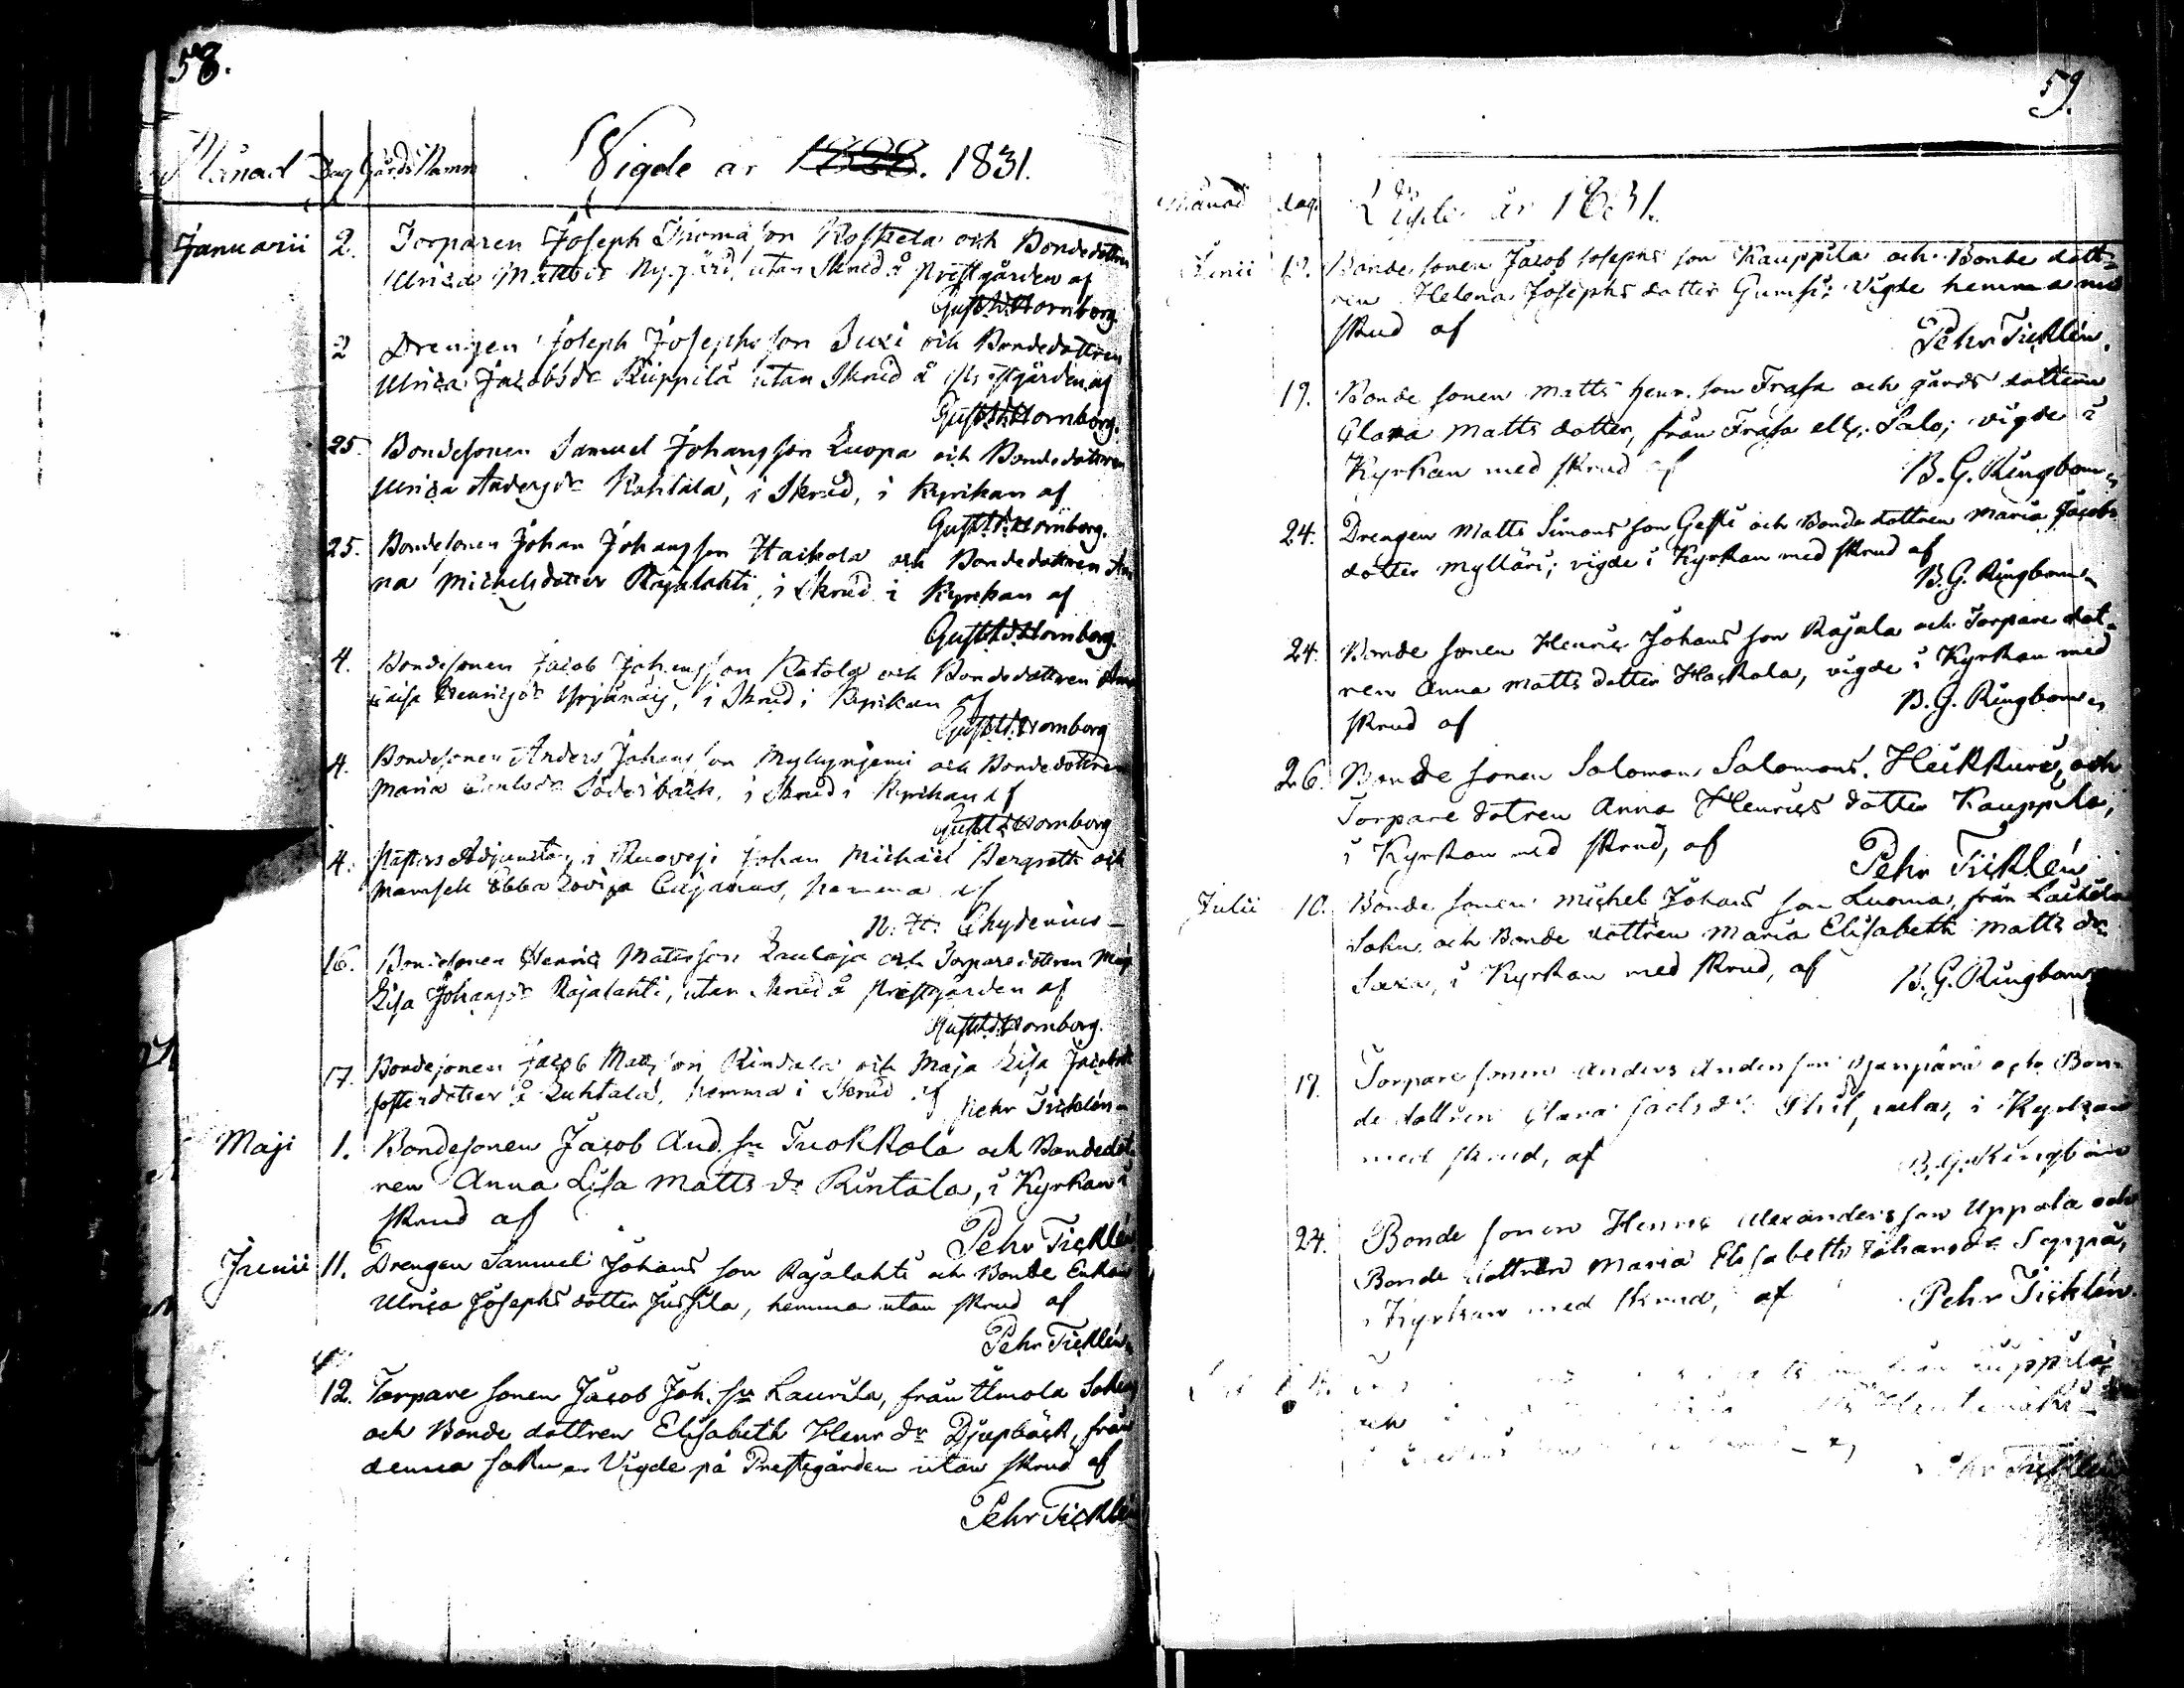 58.
Månad Dag Gårds Namn Vigde år 1828. 1831.
Januarii 2. Torparen Joseph Thomasson Koskela och Bondedottren
Ulrica Mattsdr Nygård, utan Skrud å Prestgården af
Gust. Ad. Hornborg.
2 Drengen Joseph Josephsson och Bondedottren
Ulrica Jacobsdr utan Skrud å Prestgården af
Gust. Ad. Hornborg.
25. Bondesonen Samuel Johansson Luopa och Bondedottren
Ulrica Andersdr i Skrud, i Kyrikan af
Gust. Ad. Hornborg.
25. Bondesonen Johan Johansson Haikola och Bondedottren An
na Michelsdotter i Skrud i Kyrikan af
Gust. Ad. Hornborg.
4. Bondesonen Jacob Johansson och Bondedottren Anna
Caisa Henricsdr i Skrud i Kyrikan af
Gust. Ad. Hornborg
4. Bondesonen Anders Johansson Myllyniemi och Bondedottren
Maria Söderback, i Skrud i Kyrikan af
Gust. Ad. Hornborg
4. Pastors Adjuncten i Ruovesi Johan Michael Bergroth och
Mamsell Ebba Lovisa Cajanus, hemma af
N. H. Chydenius
16. Bondesonen Henric Mattsson Laulaja och Torparedottren Maja
Lisa Johansdr Rajalahti, utan Skrud å Prestgården af
Gust. Ad. Hornborg.
17. Bondesonen Jacob Mattsson och Maja Lisa Jacobsdr
fosterdotter å Luhtala, hemma i Skrud af
Pehr Ticklén
Maji 1. Bondesonen Jacob And. sn Tuokkola och Bondedot-
ren Anna Lisa Matts dr Rintala, i Kyrkan i
skrud af
Pehr Ticklén
Junii 11. Drengen Samuel Johans son Rajalahti och Bonde Enkan
Ulrica Josephs dotter Jussila, hemma utan skrud af
Pehr Ticklén
12. Torpare sonen Jacob Joh. sn Laurila, från Ilmola Sokn
och Bonde dottren Elisabeth Henr dr Djupbäck, från
denna sokn Vigde på Prestgården utan skrud af
Pehr Ticklén
59.
Månad dag. Vigde år 1831.
Junii 12. Bonde sonen Jacob Josephs son Kauppila och Bonde dott-
ren Helena Josephs dotter Gumsi; Vigde hemma med
skrud af
Pehr Ticklén.
19. Bonde sonen Matts Henr. son Frasa och gårds dottren
Clara Matts dotter, från Frasa ell. Salo; vigde i
Kyrkan med skrud af
B. G. Ringbom
24. Drengen Matts Simons son och Bonde dottren Maria Jacobs
dotter Mylläri; vigde i Kyrkan med skrud af
B. G. Ringbom
24. Bonde sonen Henric Johans son Rajala och Torpare dot-
ren Anna Matts dotter Haskola, vigde i Kyrkan med
skrud af
B. G. Ringbom
26. Bonde sonen Salomon Salomons. Heikkuri, och
Torpare dotren Anna Henrics dotter Kauppila,
i Kyrkan med skrud, af
Pehr Ticklén
Julii 10. Bonde sonen Michel Johans son Luoma, från Laihela
Sokn och Bonde dottren Maria Elisabeth Matts dr
Saxa, i Kyrkan med skrud, af
B. G. Ringbom
17. Torpare sonen Anders Andersson och Bon-
de dottren Clara i Kyrkan
med skrud, af
B. G. Ringbom
24. Bonde sonen Henric Alexandersson Uppala och
Bonde dottren Maria Elisabeth Johansdr Seppä,
i Kyrkan med skrud, af
Pehr Ticklén.
Pehr Ticklén